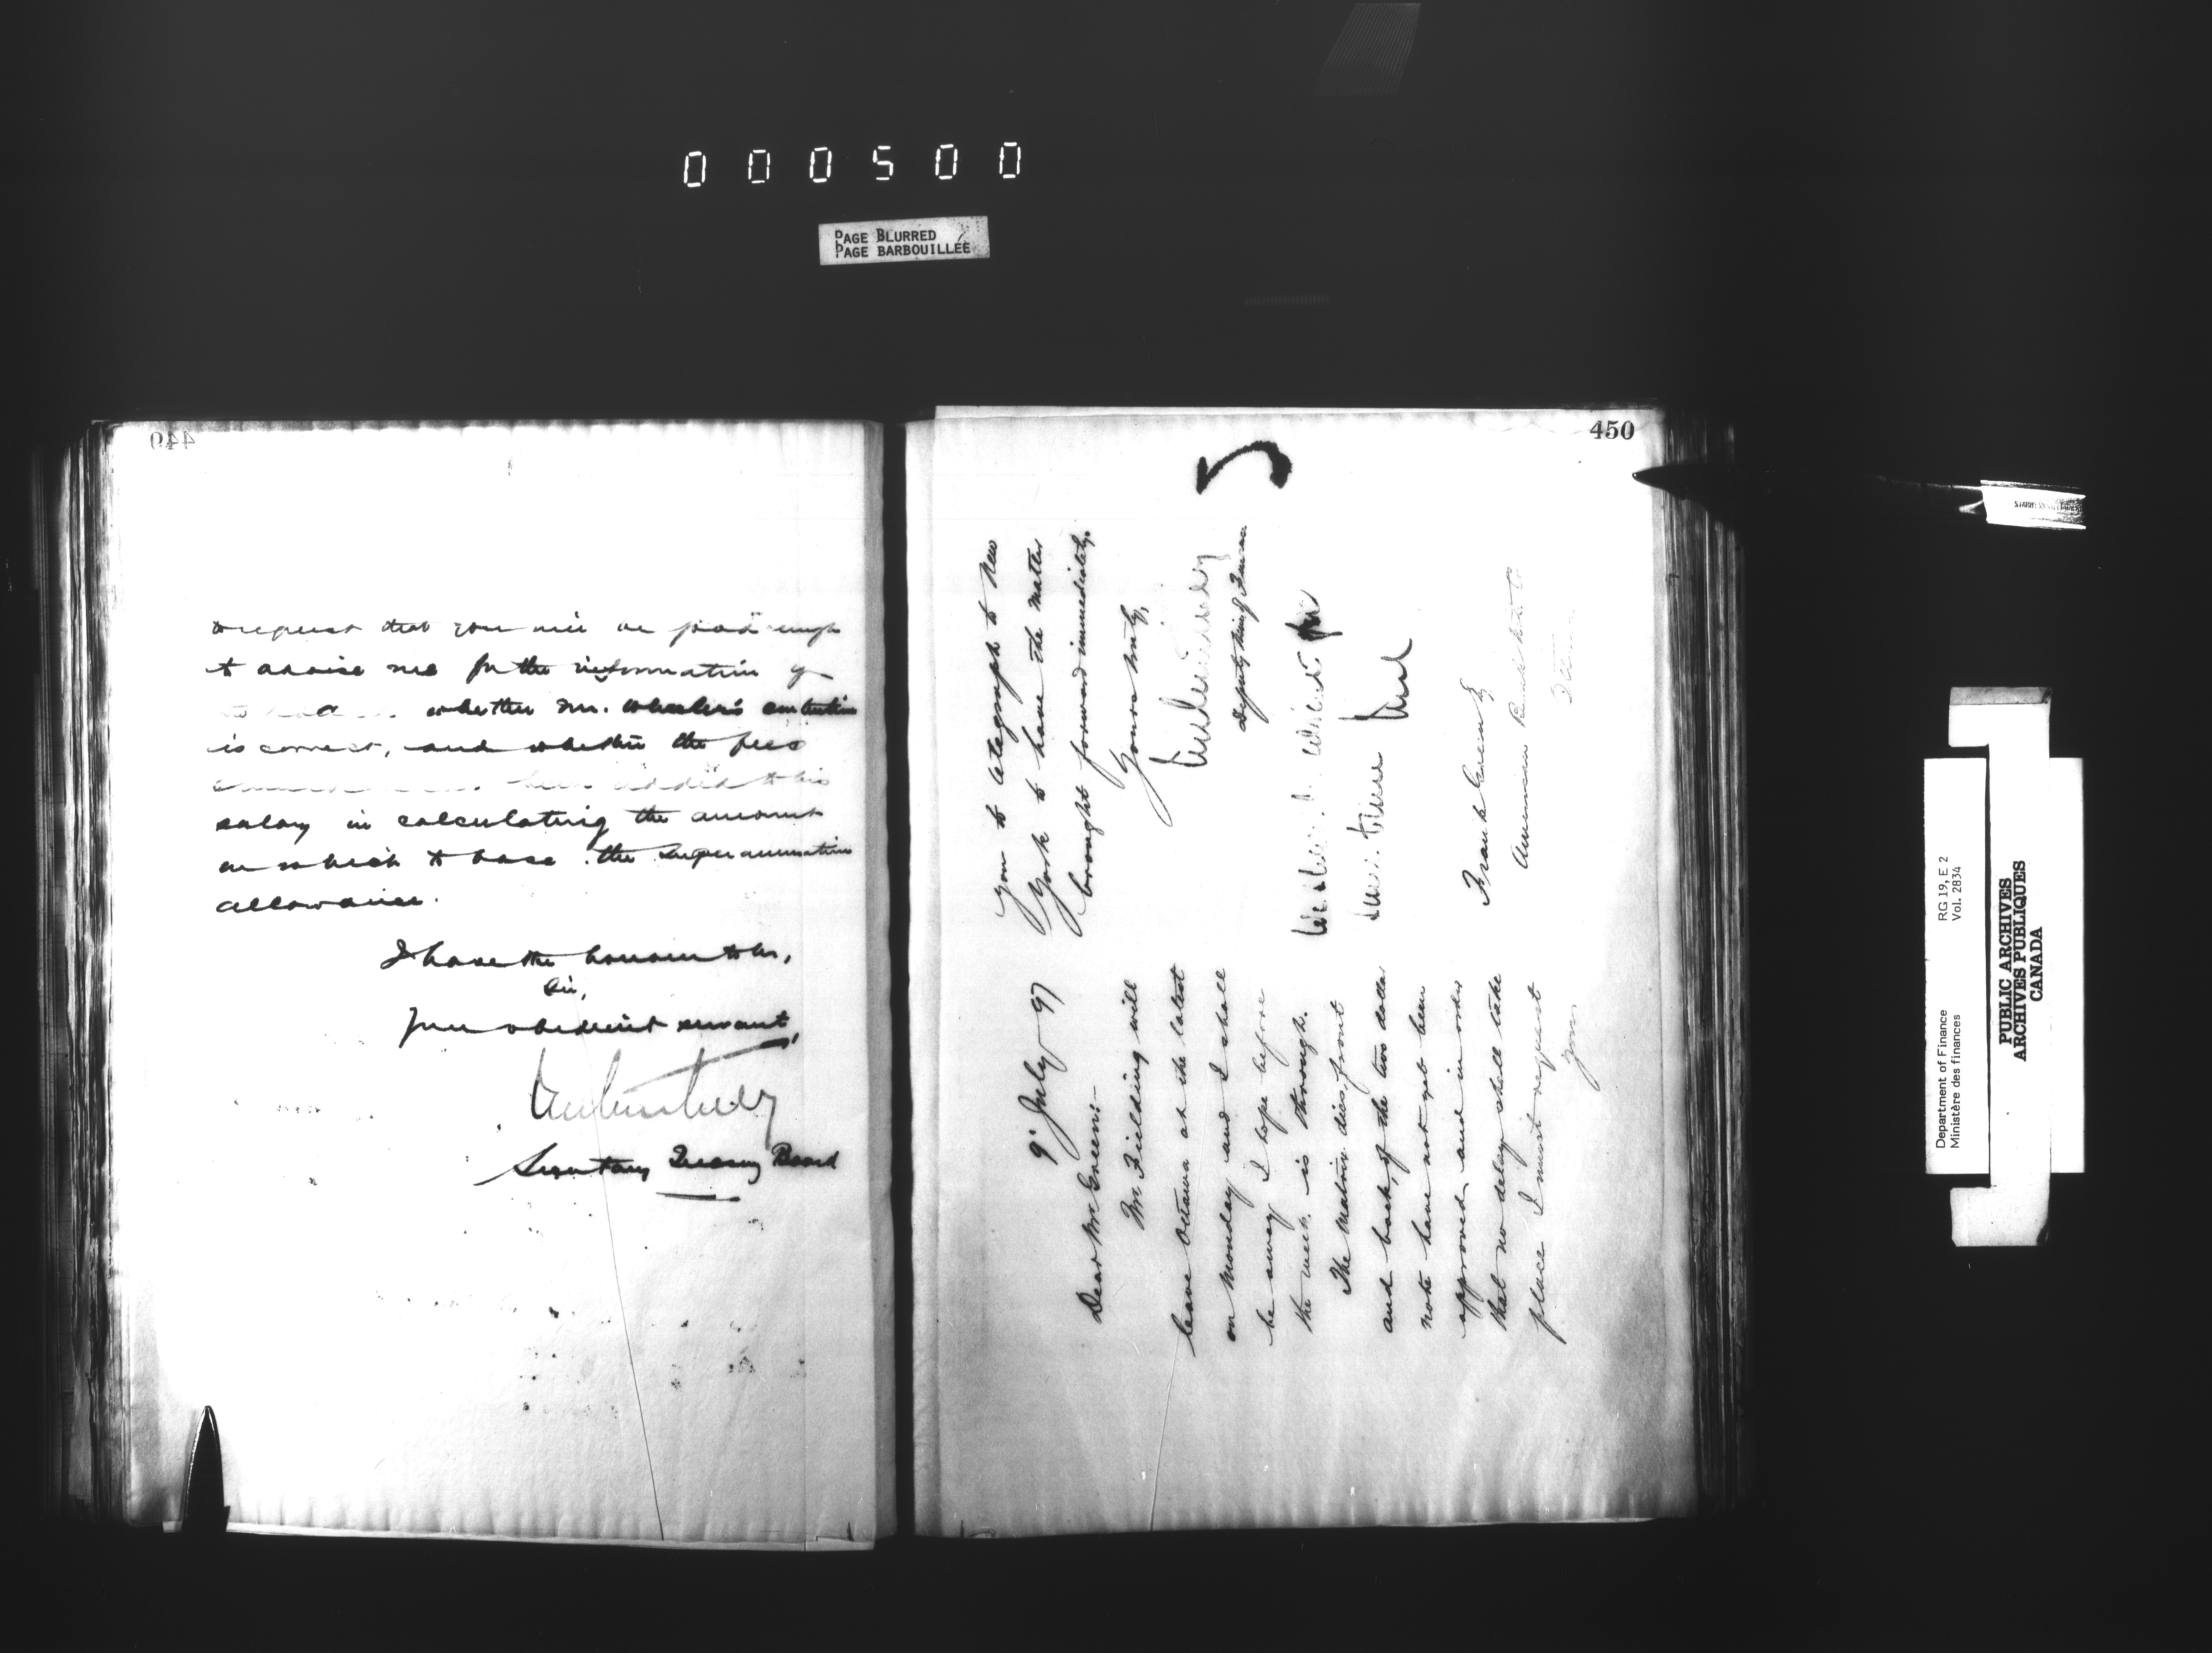 000500
PAGE BLURRED
PAGE BARBOUILLÉE
449
to request that you will be good enough
to advise me for the information of
whether Mr. Wheeler's contention
is correct, and whether the fees
been added to his
salary in calculating the amount
on which to base the superannuation
allowance.
I have the honour to be,
Sir,
Your obedient servant,
Secretary Treasury Board
450
9 July 97
Dear Mr Green:-
Mr Fielding will
leave Ottawa at the latest
on Monday and I shall
be away I hope before
the week is through.
The matrix dies, front
and back, of the two dollar
note have not yet been
approved, and in order
that no delay shall take
place I must request
you
you to telegraph to New
York to have the matter
brought forward immediately.
Yours truly,
Deputy Min of Finance
Frank Green Esq
American Bank Note Co
Ottawa
Department of Finance
Ministère des finances
RG 19, E 2
Vol. 2834
PUBLIC ARCHIVES
ARCHIVES PUBLIQUES
CANADA